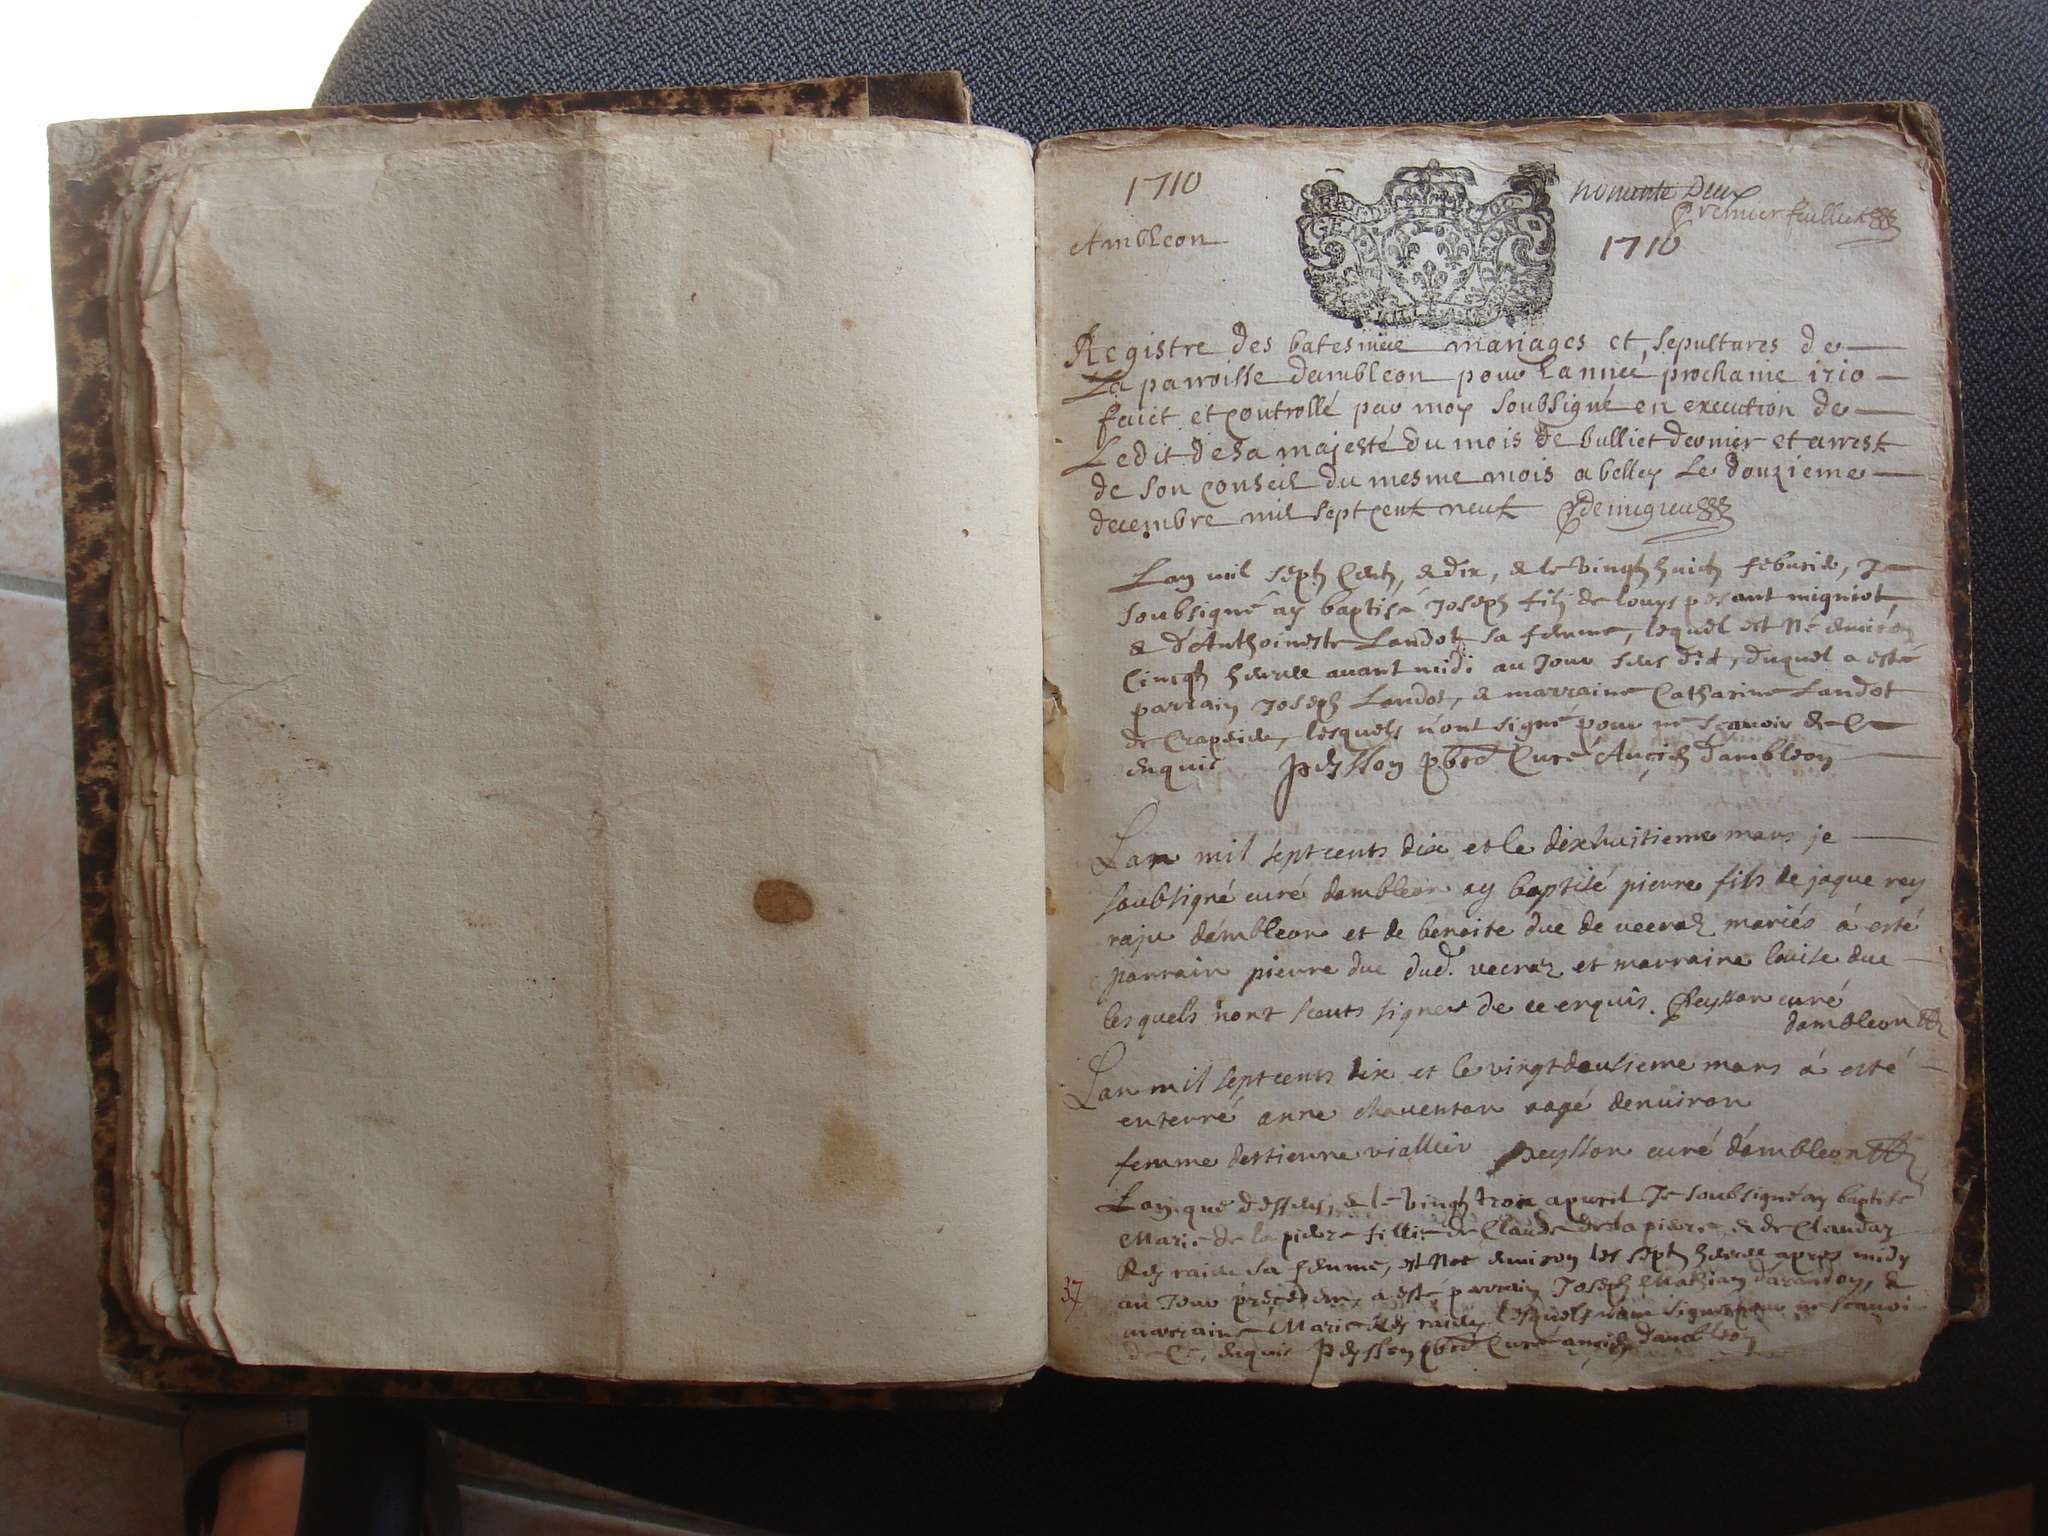 1710
nonante Deux
Premier feuillet
Ambleon
1710
Registre des batesmes mariages et sepultures de
La parroisse dambleon pour Lannee prochaine 1710
faict et controllé par moy soubsigné en execution de
Ledit de sa majesté du mois de Julliet dernier et arrest
de son conseil du mesme mois a belley Le douzieme
decembre mil sept cent neuf
Lan mil sept Cents, & dix, & le vingt huict febvrier, Je
soubsigné ay baptisé Joseph fils de Louys pesant migniot,
& d'Anthoinette Landot sa femme, lequel est Né environ
Cincq heures avant midi au Jour sus dit, duquel a esté
parrain Joseph Landot, & marraine Catharine Landot
de lesquels n'ont signé pour ne scavoir de Ce
enquis Peysson pbre Curé Ancien dambleon
Lan mil sept cents dix et le dixhuitieme mars je
soubsigné curé dambleon ay baptisé pierre fils de jaque rey
raju dámbleon et de benoite duc de veeraz mariés á esté
parrain pierre duc dud. veeraz et marraine louise duc
lesquels nont sceuts signer de ce enquis. Peysson curé
dambleon
Lan mil sept cents dix et le vingtdeusieme mars á esté
enterré anne chaventon aagé denviron
femme destienne viallier peysson curé dámbleon
Lan que dessus, & le vingt trois apvril Je soubsigné ay baptisé
Marie de la pierre fillie de Claude de la pierre, & de Claudaz
sa femme, est Née environ les sept heures apres midy
au Jour précédent, a esté parrain Joseph &
marraine Marie lesquels n'ont signé pour ne scavoir
de Ce, enquis Peysson pbre Curé ancien dambleon
37